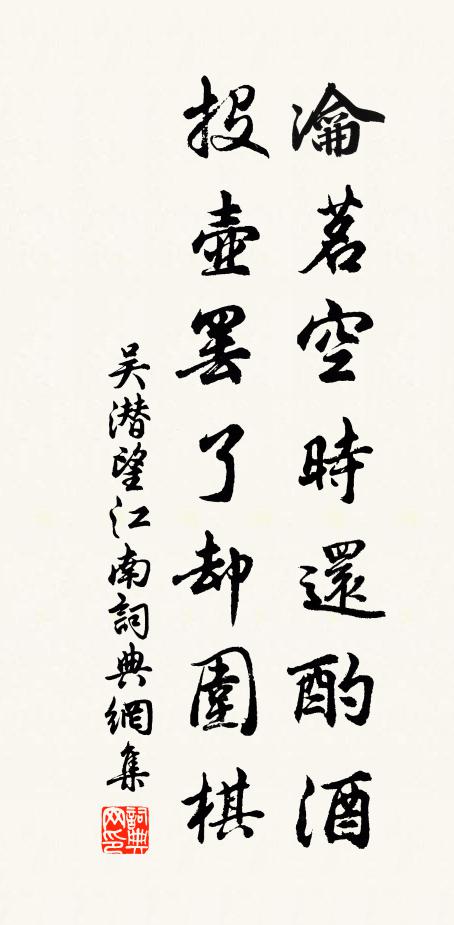 瀹茗空時還酌酒
投壺罷了却圍棋
吴潜望江南詞典網集
詞典網印